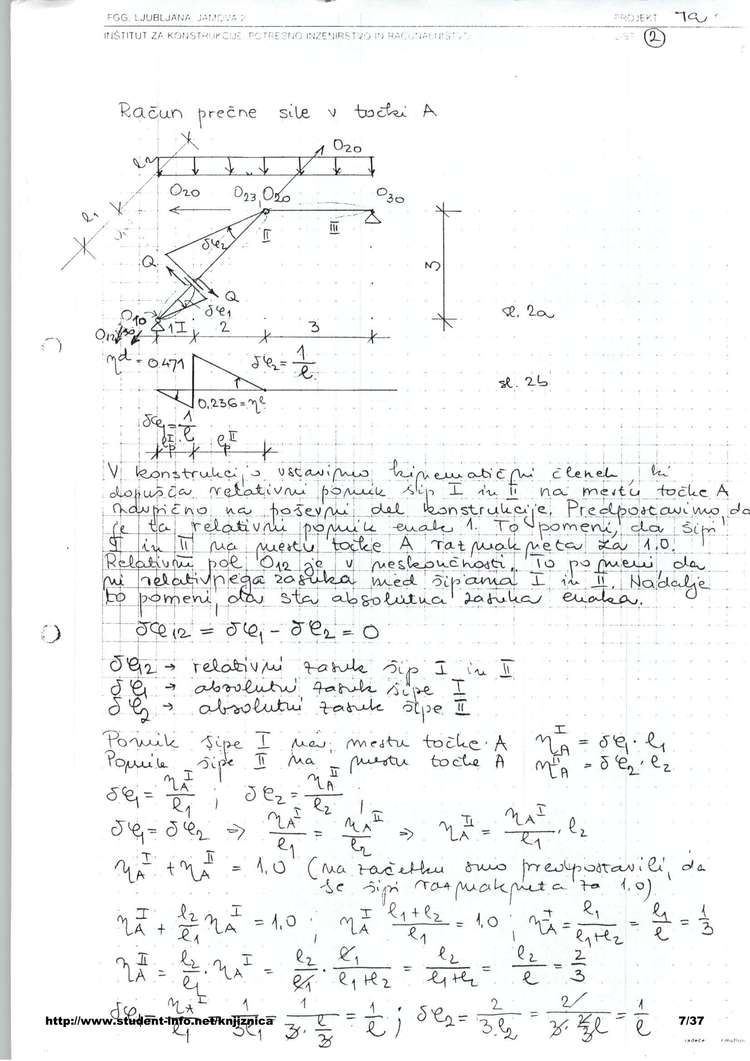 FGG, LJUBLJANA, JAMOVA 2
PROJEKT 7a
INŠTITUT ZA KONSTRUKCIJE, POTRESNO INŽENIRSTVO IN RAČUNALNIŠTVO
2
Račun prečne sile v točki A
O20
l2
O20 O23, O20 O30
l1
δφ2 II III
Q
3
Q
δφ1
O10
1 I 2 3
sl. 2a
ηd = 0.471 δφ2 = 1/l
sl. 2b
0.236 = ηl
δφ1 = 1/l
lpI lpII
V konstrukcijo vstavimo kinematični členek, ki
dopušča relativni pomik šip I in II na mestu točke A
navpično na poševni del konstrukcije. Predpostavimo, da
je ta relativni pomik enak 1. To pomeni, da šipi
I in II na mestu točke A razmakneta za 1.0.
Relativni pol O12 je v neskončnosti. To pomeni, da
ni relativnega zasuka med šipama I in II. Nadalje
to pomeni, da sta absolutna zasuka enaka.
δφ12 = δφ1 - δφ2 = 0
δφ12 → relativni zasuk šip I in II
δφ1 → absolutni zasuk šipe I
δφ2 → absolutni zasuk šipe II
Pomik šipe I na mestu točke A ηAI = δφ1 · l1
Pomik šipe II na mestu točke A ηAII = δφ2 · l2
δφ1 = ηAI/l1 ; δφ2 = ηAII/l2 ;
δφ1 = δφ2 => ηAI/l1 = ηAII/l2 => ηAII = ηAI/l1 · l2
ηAI + ηAII = 1,0 (na začetku smo predpostavili, da
se šipi razmakneta za 1,0)
ηAI + l2/l1 ηAI = 1,0 ; ηAI (l1+l2)/l1 = 1,0 ; ηAI = l1/(l1+l2) = l1/l = 1/3
ηAII = l2/l1 · ηAI = l2/l1 · l1/(l1+l2) = l2/(l1+l2) = l2/l = 2/3
δφ1 = ηAI/l1 = 1/3l1 = 1/(3·l/3) = 1/l ; δφ2 = 2/3·l2 = 2/(3·2/3 l) = 1/l
http://www.student-info.net/knjiznica 7/37